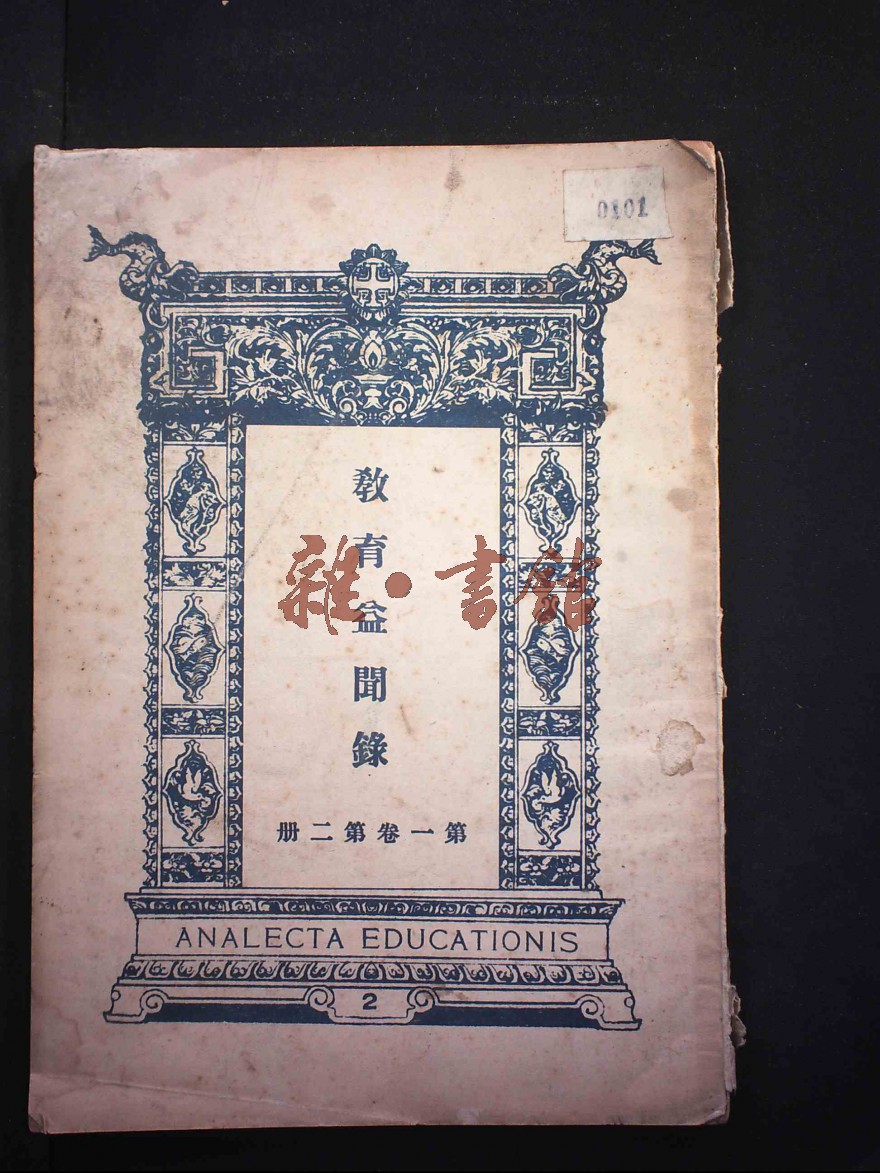 0101
教育益聞錄
雜·書館
第一卷第二册
ANALECTA EDUCATIONIS
2